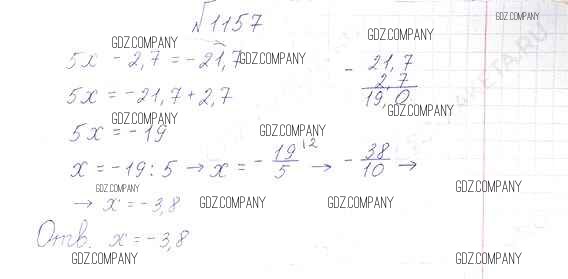 №1157
GDZ.COMPANY
GDZ.COMPANY GDZ.COMPANY
5x - 2,7 = -21,7 GDZ.COMPANY
- 21,7
2,7
19,0
5x = -21,7 + 2,7
GDZ.COMPANY GDZ.COMPANY
5x = -19 GDZ.COMPANY
x = -19 : 5 → x = - 19/5 ^(2 → - 38/10 →
GDZ.COMPANY GDZ.COMPANY
→ x = -3,8 GDZ.COMPANY GDZ.COMPANY GDZ.COMPANY
Отв. x = -3,8
GDZ.COMPANY GDZ.COMPANY GDZ.COMPANY